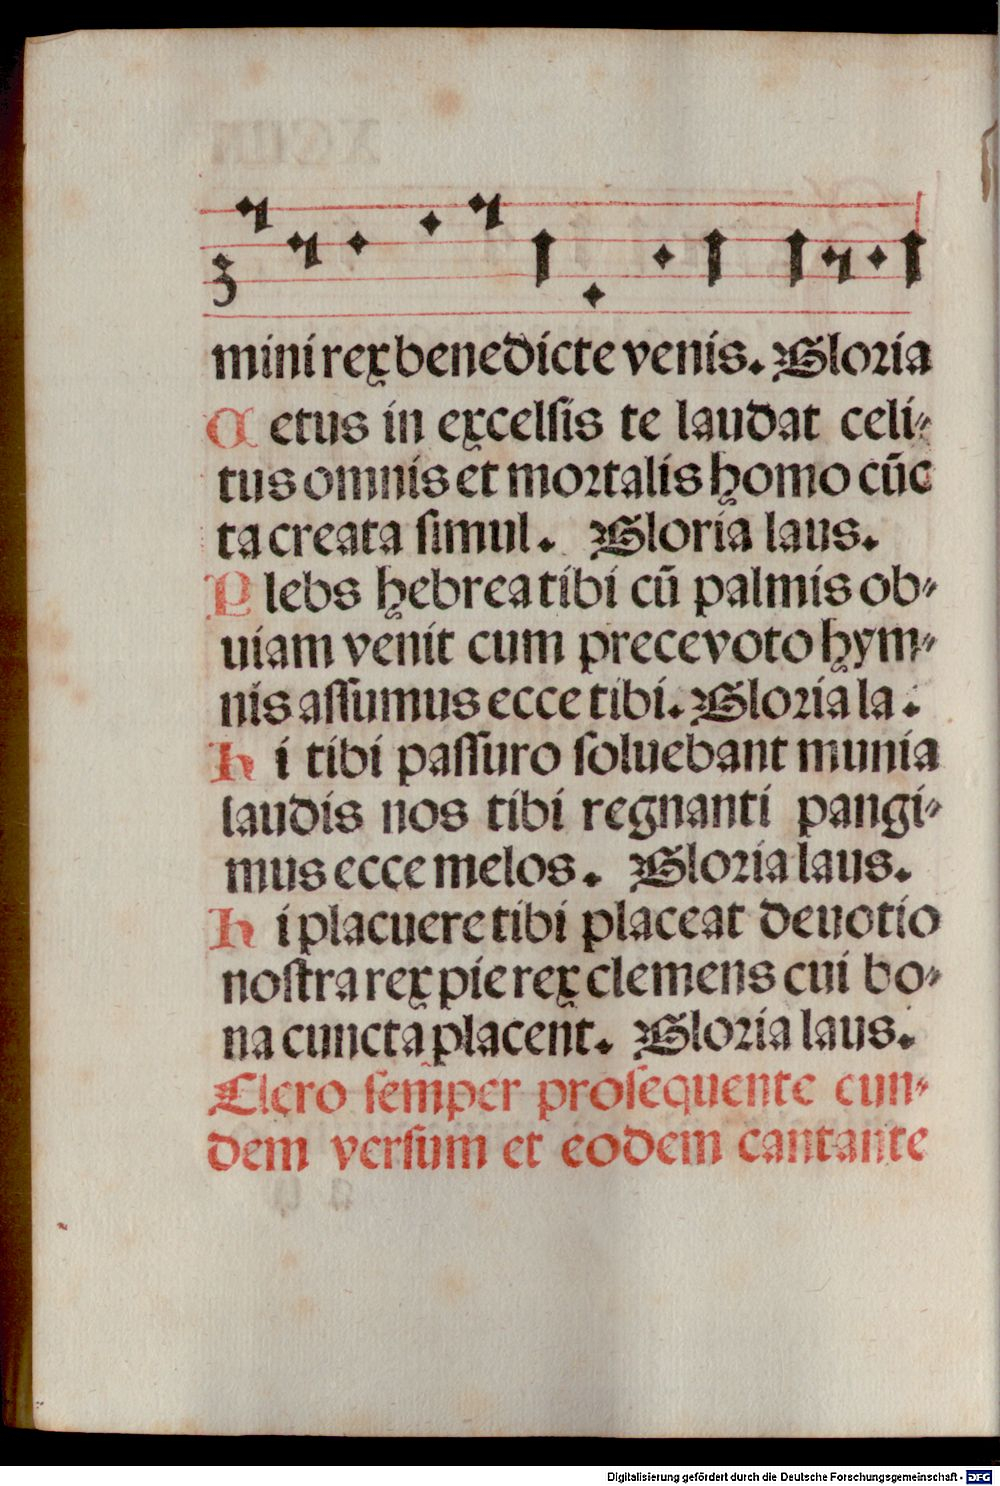 mini rex benedicte venis. Gloria
Cetus in excelsis te laudat celi-
tus omnis et mortalis homo cūc
ta creata simul. Gloria laus.
Plebs hebrea tibi cū palmis ob-
uiam venit cum prece voto hym-
nis assumus ecce tibi. Gloria la.
Hi tibi passuro soluebant munia
laudis nos tibi regnanti pangi-
mus ecce melos. Gloria laus.
Hi placuere tibi placeat deuotio
nostra rex pie rex clemens cui bo-
na cuncta placent. Gloria laus.
Clero semper prosequente eun-
dem versum et eodem cantante
Digitalisierung gefördert durch die Deutsche Forschungsgemeinschaft - DFG